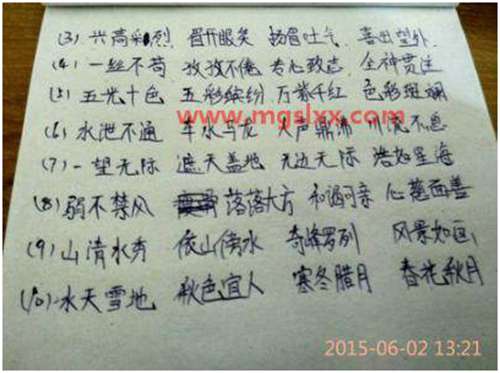 (3) 兴高采烈 眉开眼笑 扬眉吐气 喜出望外
(4) 一丝不苟 孜孜不倦 专心致志 全神贯注
(5) 五光十色 五彩缤纷 万紫千红 色彩斑斓
www.mgslxx.com
(6) 水泄不通 车水马龙 人声鼎沸 川流不息
(7) 一望无际 遮天盖地 无边无际 浩如星海
(8) 弱不禁风 落落大方 和谒可亲 心慈面善
(9) 山清水秀 依山傍水 奇峰罗列 风景如画
(10) 水天雪地 秋色宜人 寒冬腊月 春花秋月
2015-06-02 13:21